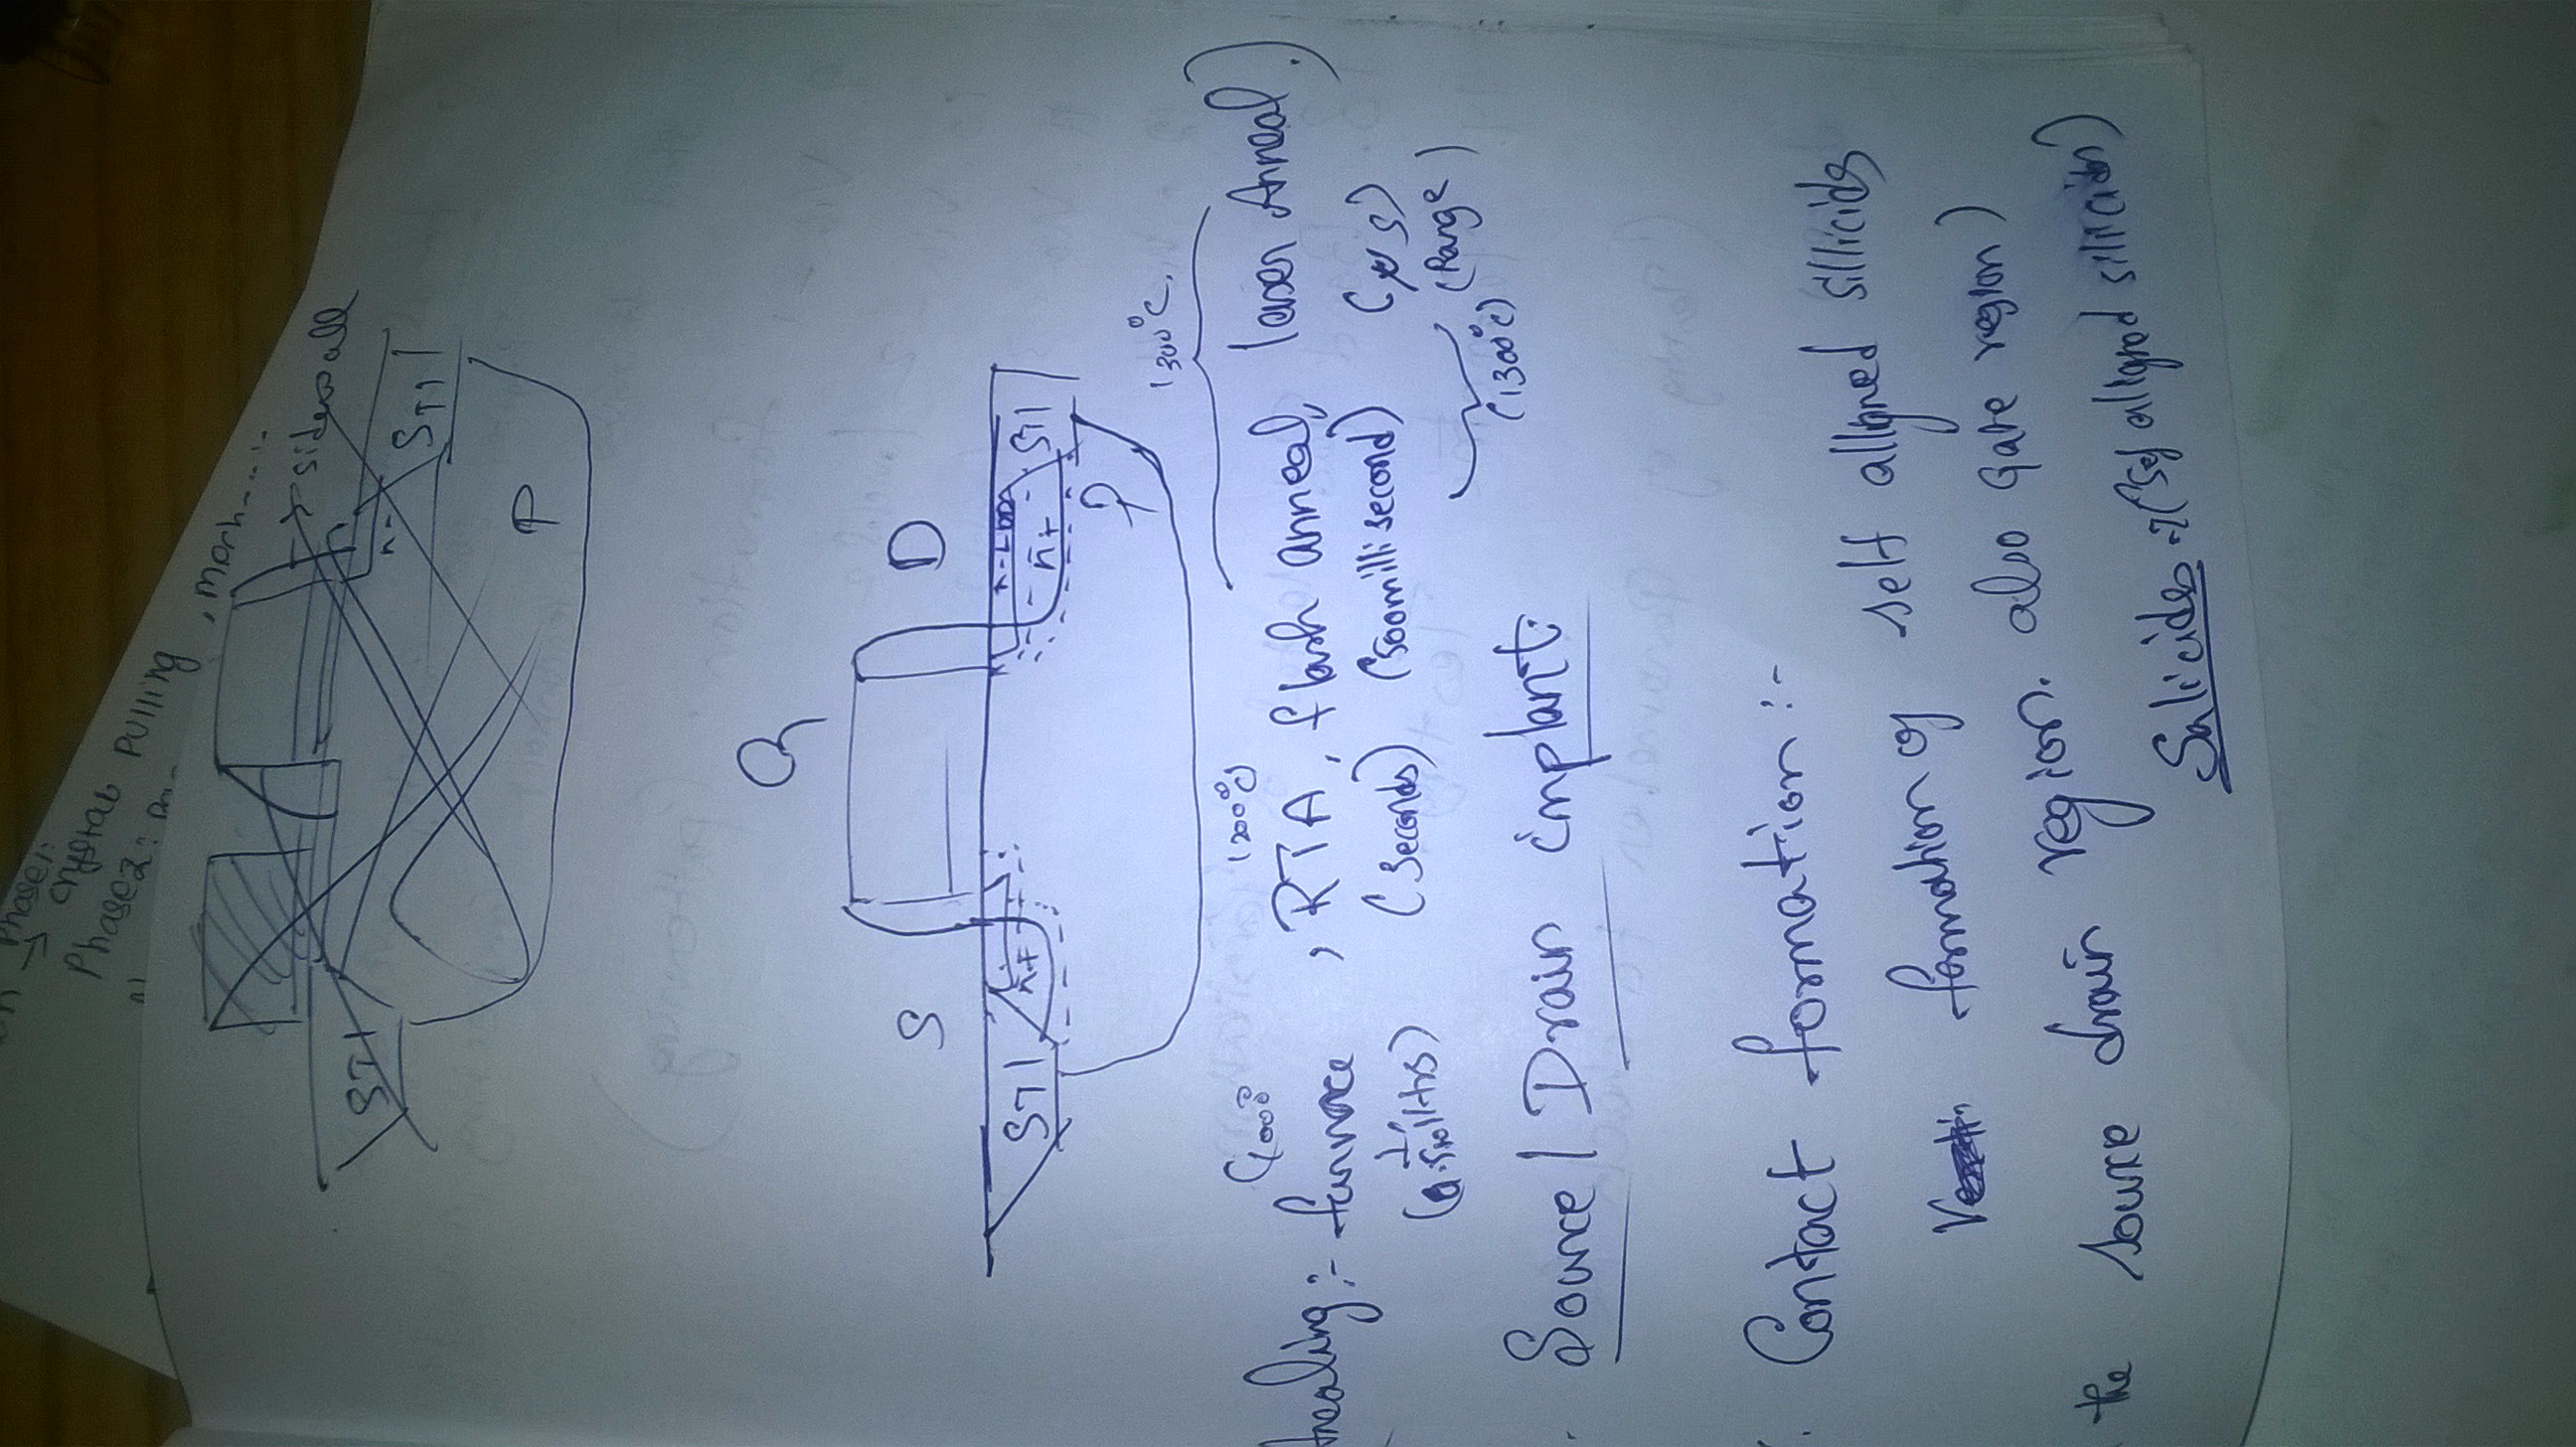 Phase1:
→ crystab PUlling
, mech-....
Phase2:
→ sidewall
STI
n-
STI
P
G
S
D
STI
n+
n-LDD
n+
STI
P
1300°C.
1200°C
healing:- furnace , RTA, flash anneal, laser Anneal.)
(seconds) (500milli second) (μs)
(Range)
(1300°c)
Source/Drain implant.
Contact formation:-
formation of self alligned sillicids
the source drain region. also Gate region)
Salicides →(Self alligned silliciden)